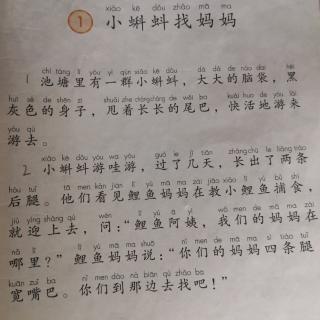 xiǎo kē dǒu zhǎo mā ma
1 小蝌蚪找妈妈
chí táng lǐ yǒu yì qún xiǎo kē dǒu dà dà de nǎo dai hēi
1 池塘里有一群小蝌蚪，大大的脑袋，黑
huī sè de shēn zi shuǎi zhe cháng cháng de wěi ba kuài huo de yóu lái
灰色的身子，甩着长长的尾巴，快活地游来
yóu qù
游去。
xiǎo kē dǒu yóu wa yóu guò le jǐ tiān zhǎng chū le liǎng tiáo
2 小蝌蚪游哇游，过了几天，长出了两条
hòu tuǐ tā men kàn jiàn lǐ yú mā ma zài jiāo xiǎo lǐ yú bǔ shí
后腿。他们看见鲤鱼妈妈在教小鲤鱼捕食，
jiù yíng shàng qù wèn lǐ yú ā yí wǒ men de mā ma zài
就迎上去，问：“鲤鱼阿姨，我们的妈妈在
nǎ lǐ lǐ yú mā ma shuō nǐ men de mā ma sì tiáo tuǐ
哪里？”鲤鱼妈妈说：“你们的妈妈四条腿
kuān zuǐ ba nǐ men dào nà biān qù zhǎo ba
宽嘴巴。你们到那边去找吧！”